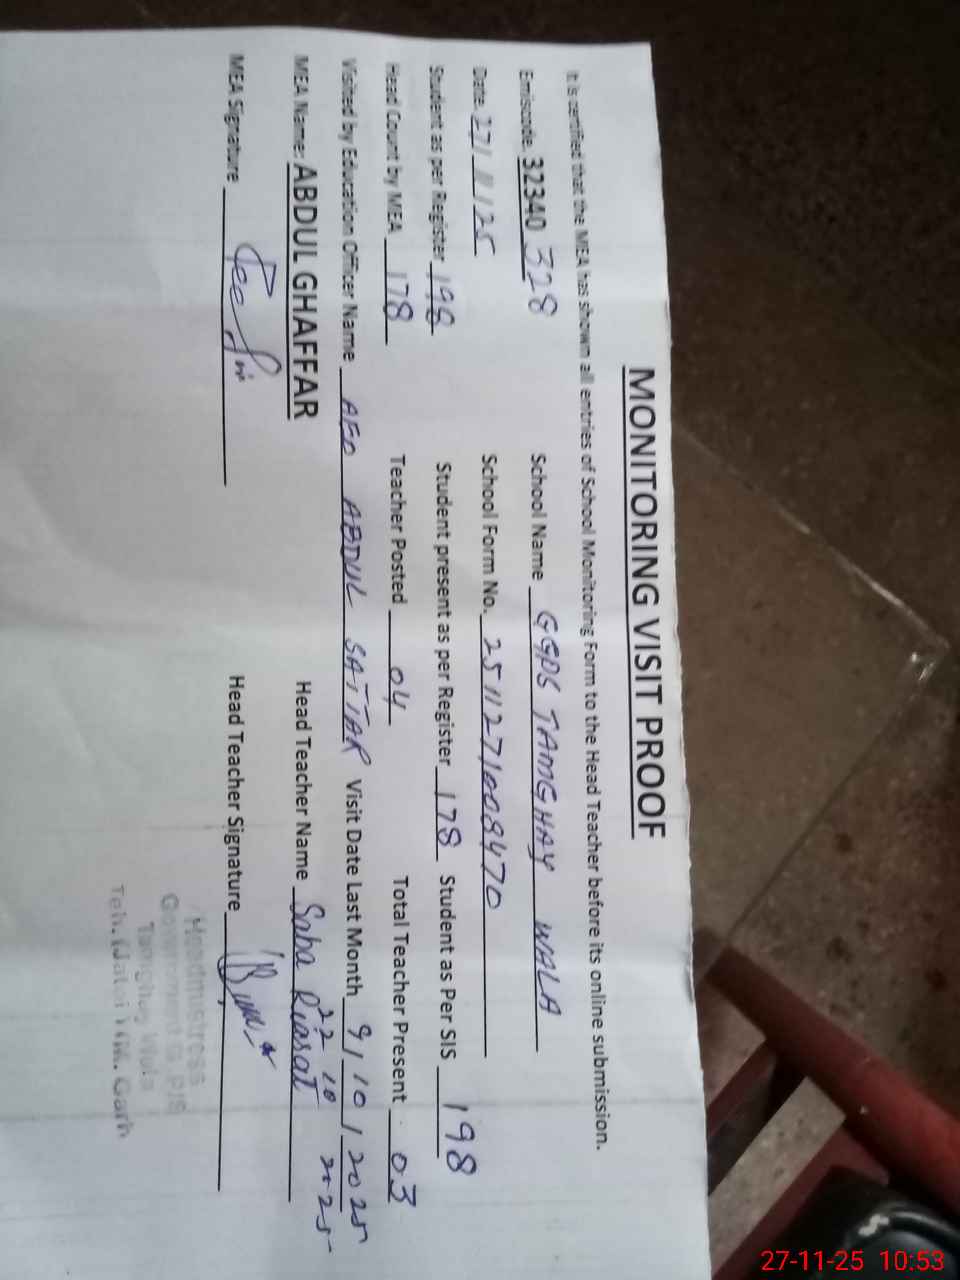 MONITORING VISIT PROOF
It is certified that the MEA has shown all entries of School Monitoring Form to the Head Teacher before its online submission.
Emiscode. 32340 328 School Name GGPS TAMGHAY WALA
Date. 27/11/25 School Form No. 2511271008470
Student as per Register 198 Student present as per Register 178 Student as Per SIS 198
Head Count by MEA 178 Teacher Posted 04 Total Teacher Present 03
Visited by Education Officer Name AEO ABDUL SATTAR Visit Date Last Month 9/10/2025
22 10 2025
MEA Name: ABDUL GHAFFAR Head Teacher Name Saba Riasat
MEA Signature Head Teacher Signature
Headmistress
Government G.P/S
Tamghay Wala
Teh. (Jatoi) M. Garh
27-11-25 10:53